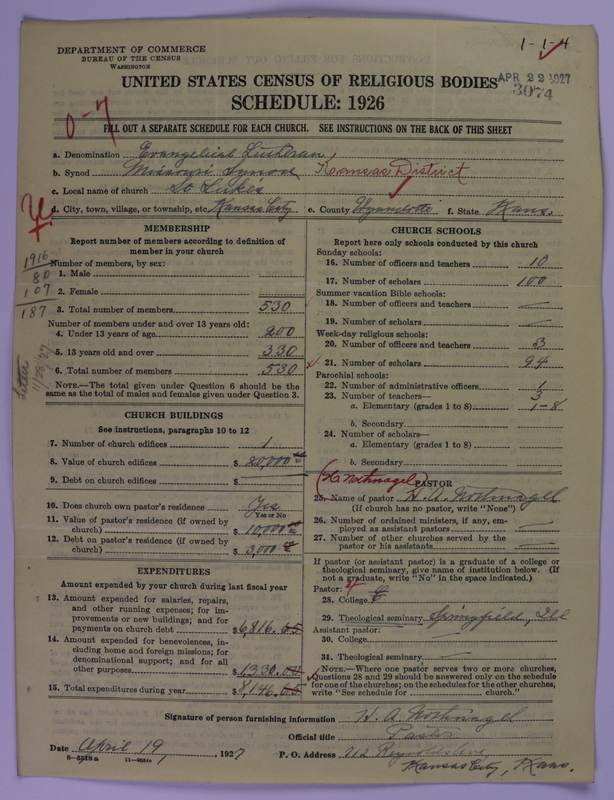 1-1-4
DEPARTMENT OF COMMERCE
BUREAU OF THE CENSUS
WASHINGTON
UNITED STATES CENSUS OF RELIGIOUS BODIES
APR 22 1927
3074
SCHEDULE: 1926
0-7
FILL OUT A SEPARATE SCHEDULE FOR EACH CHURCH. SEE INSTRUCTIONS ON THE BACK OF THIS SHEET
a. Denomination Evangelical Lutheran
b. Synod Missouri Synod Kansas District
c. Local name of church St Lukes
d. City, town, village, or township, etc. Kansas City e. County Wyandotte f. State Kans.
MEMBERSHIP
Report number of members according to definition of
member in your church
1916
80
107
187
Letter 11/26/27
Number of members, by sex:
1. Male
2. Female
3. Total number of members 530
Number of members under and over 13 years old:
4. Under 13 years of age 200
5. 13 years old and over 330
6. Total number of members 530
NOTE.—The total given under Question 6 should be the
same as the total of males and females given under Question 3.
CHURCH BUILDINGS
See instructions, paragraphs 10 to 12
7. Number of church edifices 1
8. Value of church edifices $20,000
9. Debt on church edifices $
10. Does church own pastor's residence Yes
Yes or No
11. Value of pastor's residence (if owned by
church) $10,000
12. Debt on pastor's residence (if owned by
church) $3,000
EXPENDITURES
Amount expended by your church during last fiscal year
13. Amount expended for salaries, repairs,
and other running expenses; for im-
provements or new buildings; and for
payments on church debt $6,816.
14. Amount expended for benevolences, in-
cluding home and foreign missions; for
denominational support; and for all
other purposes $1330.
15. Total expenditures during year $8,146.
CHURCH SCHOOLS
Report here only schools conducted by this church
Sunday schools:
16. Number of officers and teachers 10
17. Number of scholars 100
Summer vacation Bible schools:
18. Number of officers and teachers —
19. Number of scholars —
Week-day religious schools:
20. Number of officers and teachers 3
21. Number of scholars 94
Parochial schools:
22. Number of administrative officers 1
23. Number of teachers— 3
a. Elementary (grades 1 to 8) 1-8
b. Secondary
24. Number of scholars—
a. Elementary (grades 1 to 8)
b. Secondary
PASTOR
25. Name of pastor H. A. Nothnagel
(If church has no pastor, write "None")
26. Number of ordained ministers, if any, em-
ployed as assistant pastors —
27. Number of other churches served by the
pastor or his assistants —
If pastor (or assistant pastor) is a graduate of a college or
theological seminary, give name of institution below. (If
not a graduate, write "No" in the space indicated.)
Pastor:
28. College
29. Theological seminary Springfield, Ill
Assistant pastor:
30. College —
31. Theological seminary —
NOTE.—Where one pastor serves two or more churches,
Questions 28 and 29 should be answered only on the schedule
for one of the churches; on the schedules for the other churches,
write "See schedule for church."
Signature of person furnishing information H. A. Nothnagel
Official title Pastor
Date April 19, 1927 P. O. Address 712 Reynolds Ave
8-5318a
Kansas City, Kans.